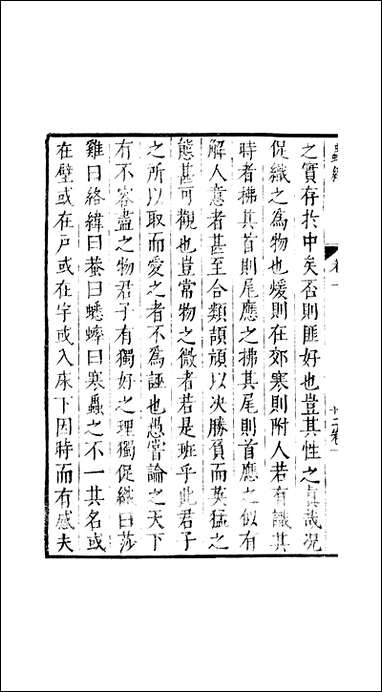 之實存扵中矣否則匪好也豈其性之真哉况
促織之爲物也煖則在郊寒則附人若有識其
時者拂其首則尾應之拂其尾則首應之似有
解人意者甚至合類頡頏以决勝負而英猛之
態甚可觀也豈常物之微者若是班乎此君子
之所以取而愛之者不爲誣也愚嘗論之天下
有不容盡之物君子有獨好之理獨促織曰莎
雞曰絡緯曰蛬曰蟋蟀曰寒蟲之不一其名或
在壁或在戶或在宇或入床下因時而有感夫